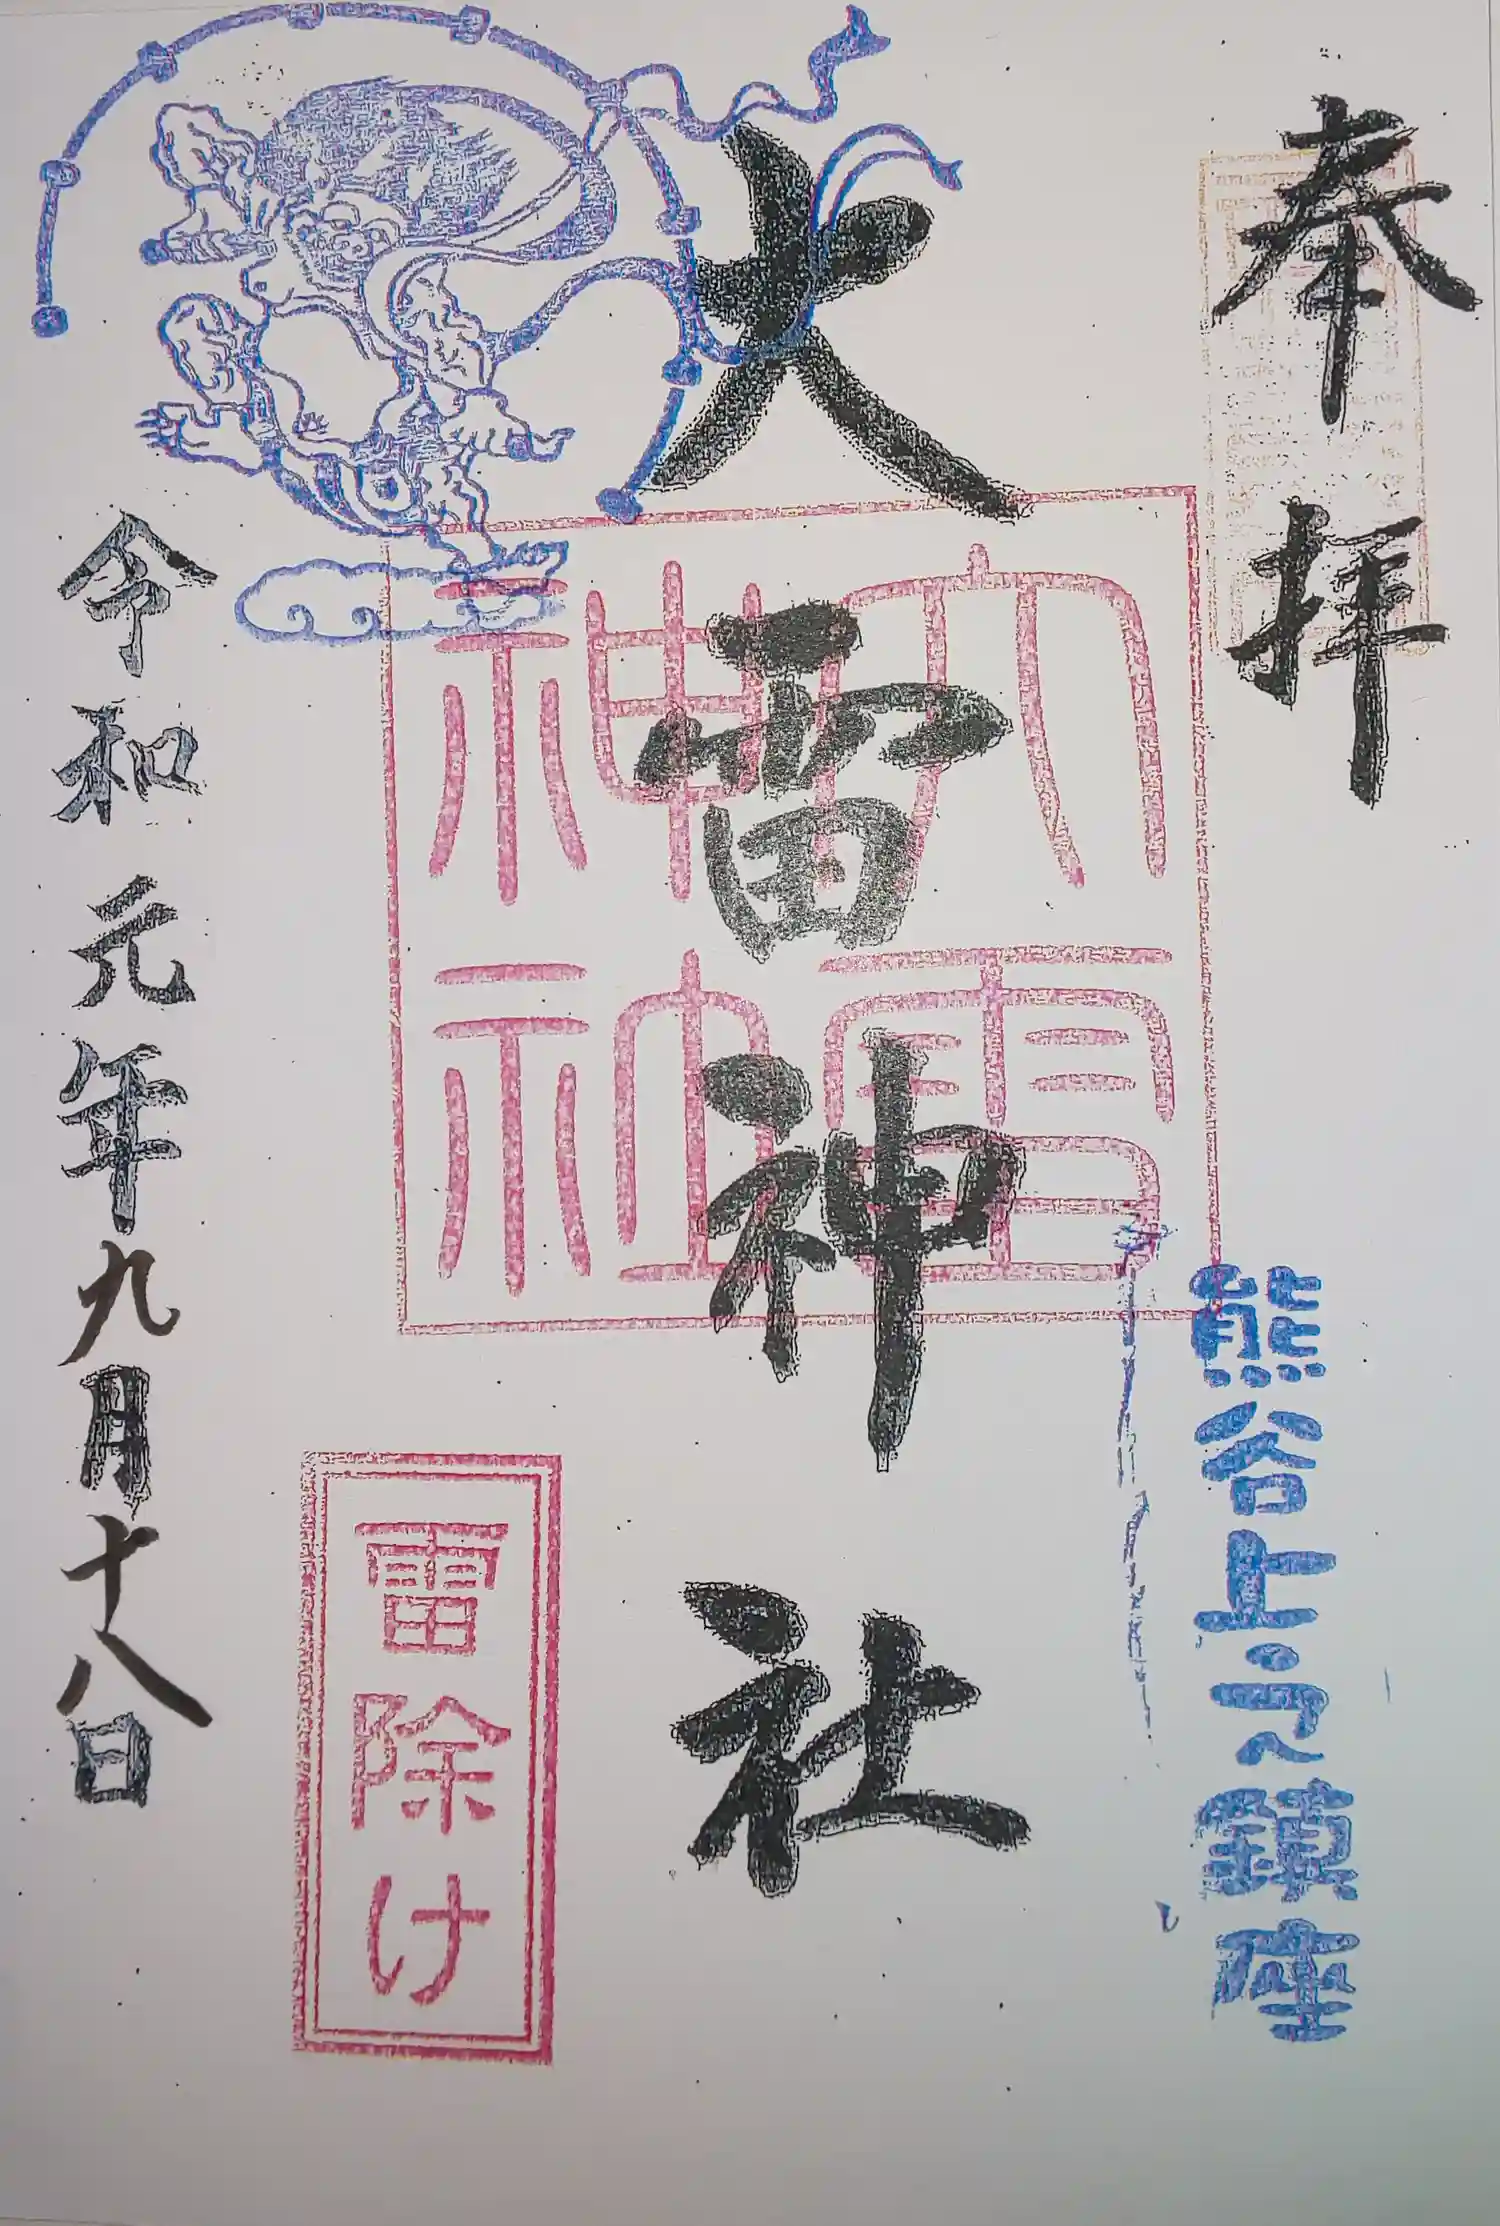 奉拝
熊谷上之鎮座
大雷神社
大雷神社
雷除け
令和元年九月十八日